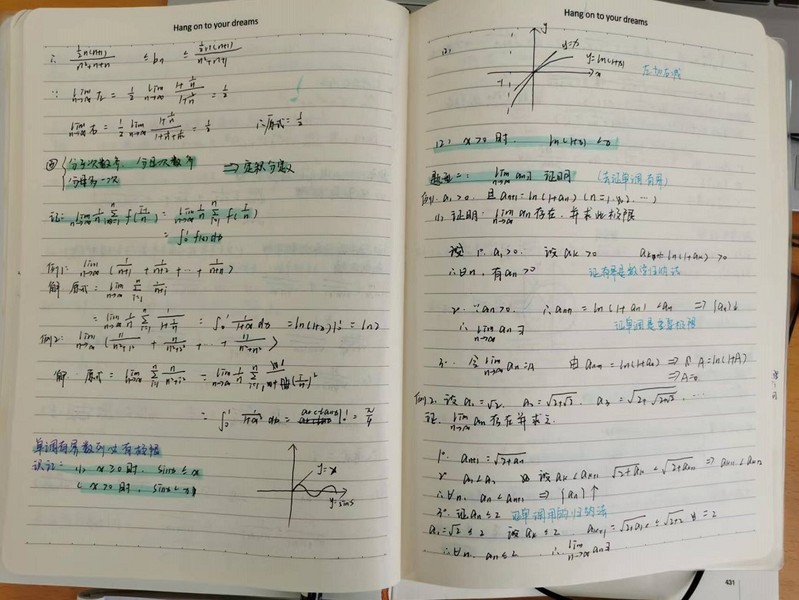 Hang on to your dreams
∴ (½n(n+1))/(n²+n+n) ≤ bn ≤ (½n(n+1))/(n²+n+1)
∵ lim n→∞ 左 = 1/2 lim n→∞ (1+1/n)/(1+2/n) = 1/2
lim n→∞ 右 = 1/2 lim n→∞ = 1/2 ∴原式=1/2
分子次数齐 分母次数齐
分母多一次 ⇒ 定积分定义
证: lim n→∞ 1/n Σ i=1 n f(i/n) = lim n→∞ 1/n Σ i=1 n f(i/n)
= ∫₀¹ f(x)dx
例1: lim n→∞ (1/(n+1) + 1/(n+2) + … + 1/(n+n))
解 原式= lim n→∞ Σ i=1 n 1/(n+i)
= lim n→∞ 1/n Σ i=1 n 1/(1+i/n) = ∫₀¹ 1/(1+x) dx = ln(1+x)|₀¹ = ln2
例2: lim n→∞ (n/(n²+1²) + n/(n²+2²) + … + n/(n²+n²))
解 原式= lim n→∞ Σ i=1 n n/(n²+i²) = lim n→∞ 1/n Σ i=1 n 1/(1+(i/n)²)
= ∫₀¹ 1/(1+x²) dx = arctanx|₀¹ = π/4
单调有界数列必有极限
(1) x≥0时, sinx≤x
x>0时, sinx<x
y=x
y=sinx
Hang on to your dreams
(2)
y
y=x
y=ln(1+x)
x
左加右减
(2) x>0时, ln(1+x)<x
题型二: lim n→∞ an∃ 证明 (先证单调有界)
例1. a₁>0, 且 an+1=ln(1+an) (n=1,2,…)
(1) 证明: lim n→∞ an存在, 并求此极限
1°. a₁>0; 设 ak>0 ak+1=ln(1+ak)>0
∴∀n, 有an>0 证有界是数学归纳法
2° ∵an>0, ∴an+1=ln(1+an)<an ⇒ {an}↓
∴ lim n→∞ an∃
3°. 令 lim n→∞ an=A 由 an+1=ln(1+an) ⇒ A=ln(1+A)
⇒A=0
例2. 设a₁=√2, a₂=√(2+√2), a₃=√(2+√(2+√2)), …
证. lim n→∞ an存在并求之
1°. an+1=√(2+an)
2° a₁<a₂ 设ak<ak+1 √(2+ak)<√(2+ak+1) ⇒ ak+1<ak+2
∴∀n, an<an+1 ⇒ {an}↑
3° 证an≤2 证单调用的归纳法
a₁=√2≤2 设ak≤2 ak+1=√(2+ak)≤√(2+2)=2
∴∀n, an≤2 ∴ lim n→∞ an∃
431